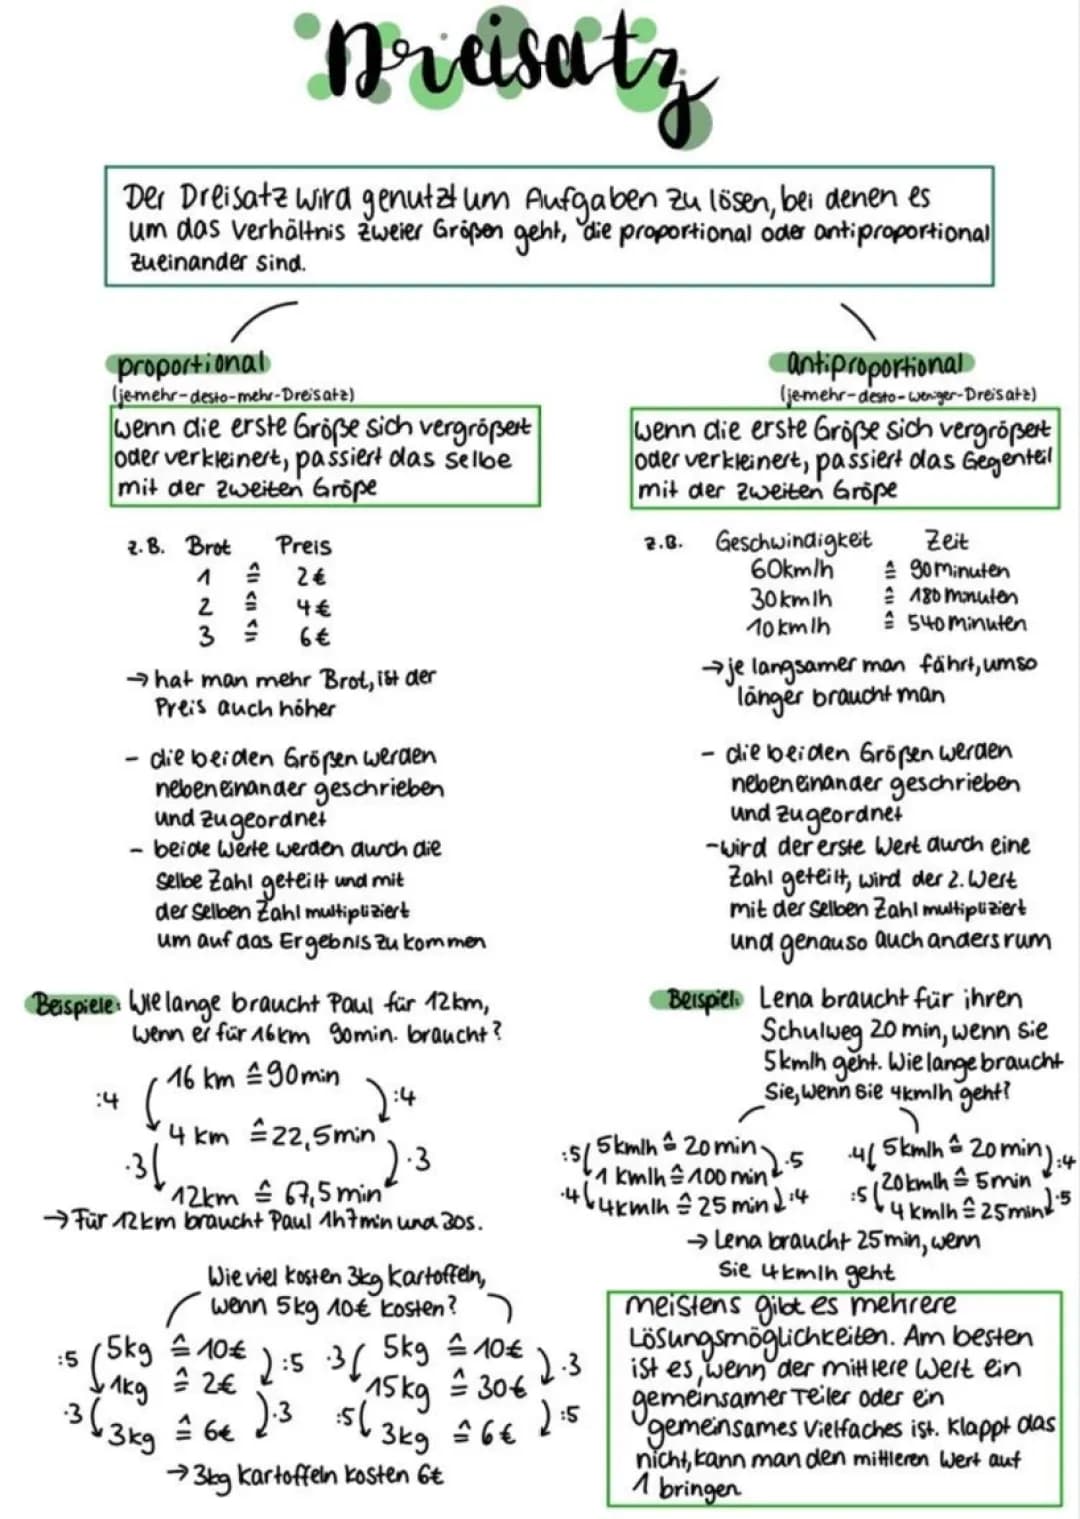 Dreisatz
Der Dreisatz wird genutzt um Aufgaben zu lösen, bei denen es
um das Verhältnis zweier Größen geht, die proportional oder antiproportional
zueinander sind.
proportional
(je-mehr-desto-mehr-Dreisatz)
wenn die erste Größe sich vergrößert
oder verkleinert, passiert das selbe
mit der zweiten Größe
z.B. Brot Preis
1 ≙ 2€
2 ≙ 4€
3 ≙ 6€
→ hat man mehr Brot, ist der
Preis auch höher
- die beiden Größen werden
nebeneinander geschrieben
und zugeordnet
- beide Werte werden durch die
selbe Zahl geteilt und mit
der selben Zahl multipliziert
um auf das Ergebnis zu kommen
Beispiele: Wie lange braucht Paul für 12km,
wenn er für 16km 90min. braucht?
:4 16 km ≙ 90min :4
4 km ≙ 22,5min
·3 ·3
12km ≙ 67,5min
→ Für 12km braucht Paul 1h7min und 30s.
Wie viel kosten 3kg Kartoffeln,
wenn 5kg 10€ kosten?
:5 5kg ≙ 10€ :5
1kg ≙ 2€
·3 3kg ≙ 6€ ·3
·3 5kg ≙ 10€ ·3
15kg ≙ 30€
:5 3kg ≙ 6€ :5
→ 3kg Kartoffeln kosten 6€
antiproportional
(je-mehr-desto-weniger-Dreisatz)
wenn die erste Größe sich vergrößert
oder verkleinert, passiert das Gegenteil
mit der zweiten Größe
z.B. Geschwindigkeit Zeit
60km/h ≙ 90 minuten
30km/h ≙ 180 minuten
10km/h ≙ 540 minuten
→ je langsamer man fährt, umso
länger braucht man
- die beiden Größen werden
nebeneinander geschrieben
und zugeordnet
- wird der erste Wert durch eine
Zahl geteilt, wird der 2. Wert
mit der selben Zahl multipliziert
und genauso auch anders rum
Beispiel: Lena braucht für ihren
Schulweg 20 min, wenn sie
5km/h geht. Wie lange braucht
sie, wenn sie 4km/h geht?
:5 5km/h ≙ 20min ·5
1 km/h ≙ 100 min
·4 4km/h ≙ 25 min :4
·4 5km/h ≙ 20min :4
20km/h ≙ 5min
:5 4 km/h ≙ 25min ·5
→ Lena braucht 25min, wenn
sie 4km/h geht
meistens gibt es mehrere
Lösungsmöglichkeiten. Am besten
ist es, wenn der mittlere Wert ein
gemeinsamer Teiler oder ein
gemeinsames Vielfaches ist. Klappt das
nicht, kann man den mittleren Wert auf
1 bringen